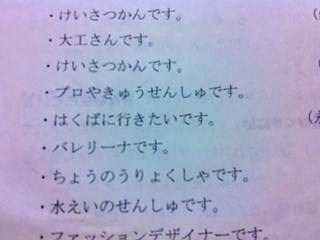 ・けいさつかんです。
・大工さんです。
・けいさつかんです。
・プロやきゅうせんしゅです。
・はくばに行きたいです。
・バレリーナです。
・ちょうのうりょくしゃです。
・水えいのせんしゅです。
・ファッションデザイナーです。